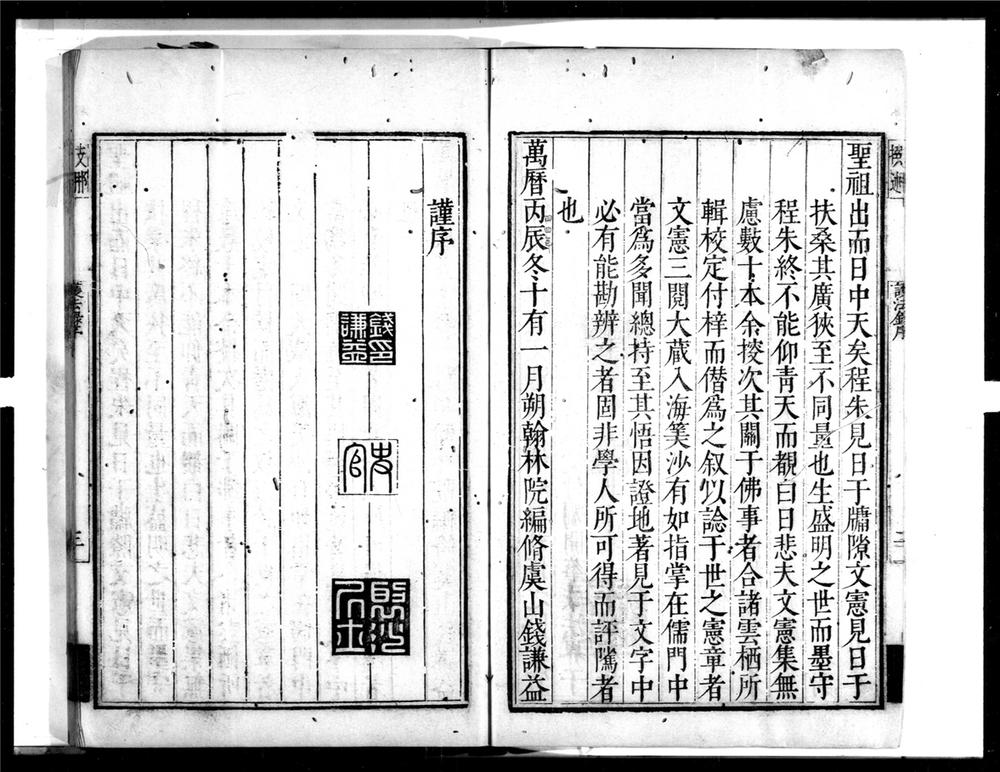 聖祖出而日中天矣程朱見日于牖隙文憲見日于
扶桑其廣狹至不同量也生盛明之世而墨守
程朱終不能仰青天而觀白日悲夫文憲集無
慮數十本余挍次其關于佛事者合諸雲栖所
輯校定付梓而僭為之叙以諗于世之憲章者
文憲三閱大藏入海筭沙有如指掌在儒門中
當為多聞總持至其悟因證地著見于文字中
必有能勘辨之者固非學人所可得而評隲者
也
萬曆丙辰冬十有一月朔翰林院編脩虞山錢謙益
謹序
錢印謙益
史官
護法錄序
二
三